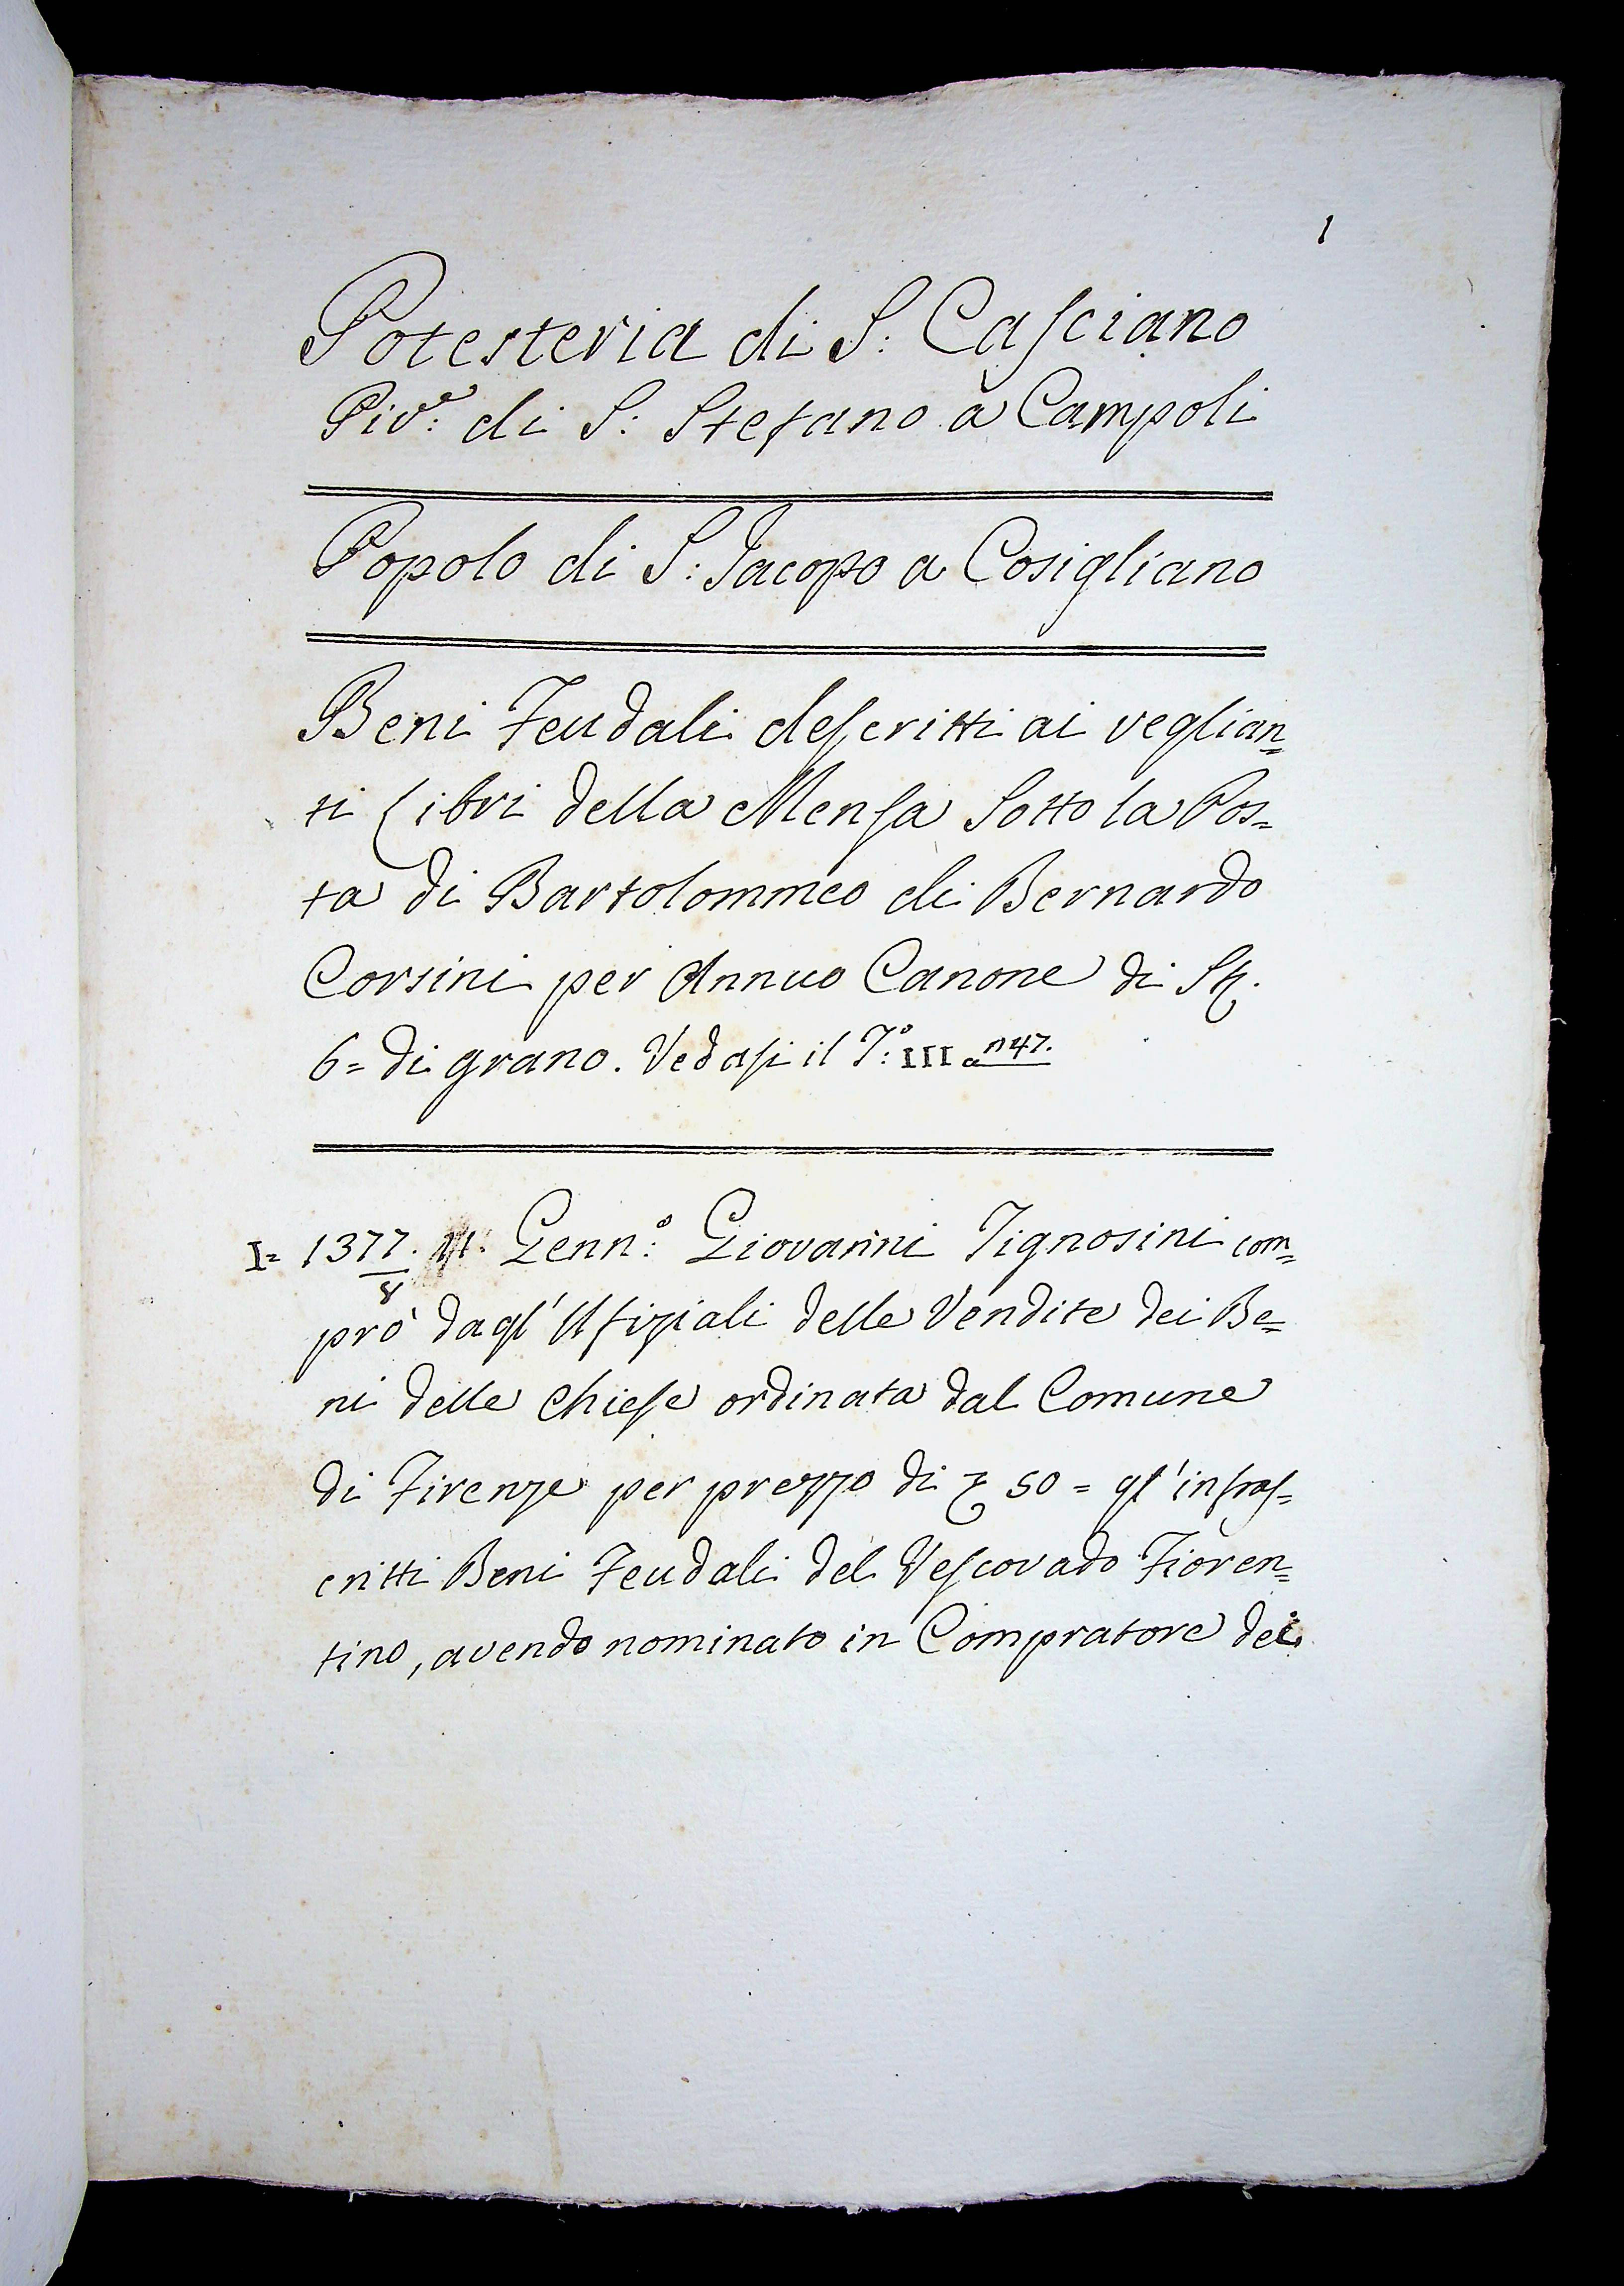 1
Potesteria di S: Casciano
Piv.e di S: Stefano à Campoli
Popolo di S: Jacopo a Cosigliano
Beni Feudali descritti ai veglian=
ti Libri della Mensa Sotto la Pos=
ta di Bartolommeo di Bernardo
Corsini per Annuo Canone di St.
6= di grano. Vedasi il T:o III a n 47.
I= 1377/8. 11. Genn:o Giovanni Tignosini com=
prò dagl' Ufiziali delle Vendite dei Be=
ni delle Chiese ordinata dal Comune
di Firenze per prezzo di 50= gl'infras=
critti Beni Feudali del Vescovado Fioren=
tino, avendo nominato in Compratore dei